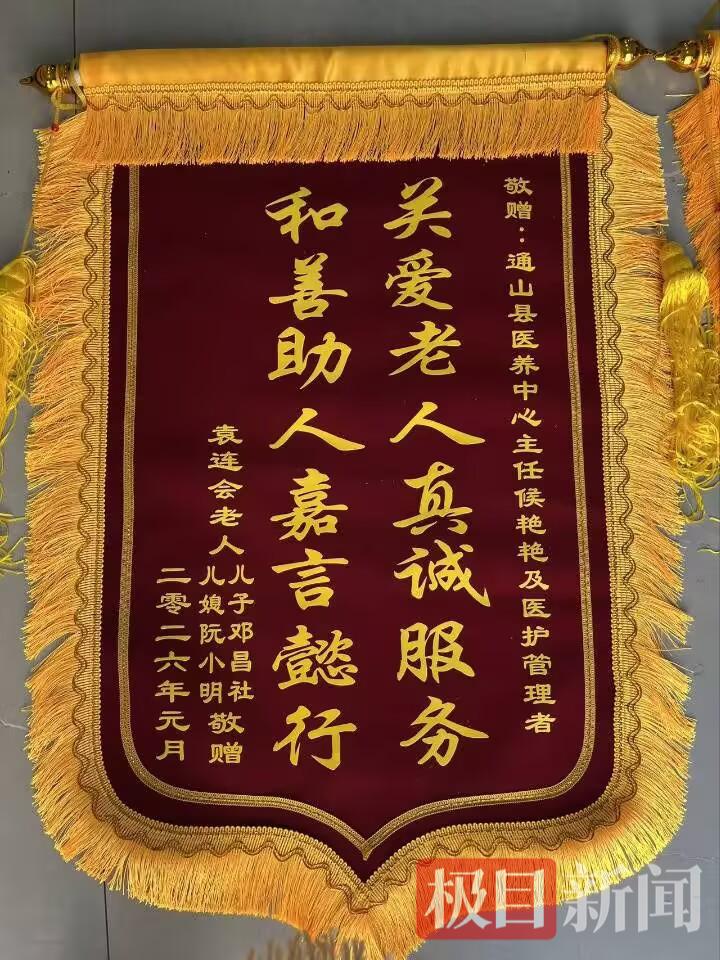 敬赠：通山县医养中心主任侯艳艳及医护管理者
关爱老人真诚服务
和善助人嘉言懿行
袁连会老人儿子邓昌社
儿媳阮小明敬赠
二零二六年元月
极目新闻